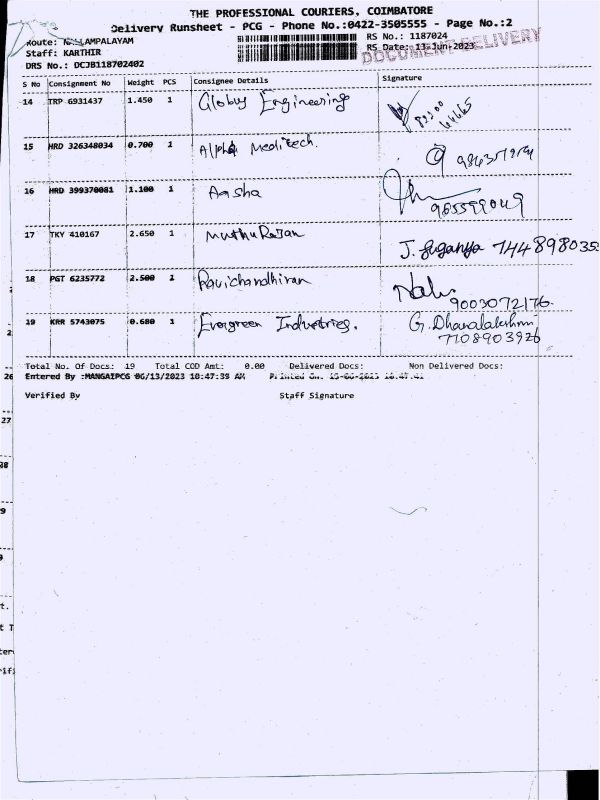 THE PROFESSIONAL COURIERS, COIMBATORE
Delivery Runsheet - PCG - Phone No.:0422-3505555 - Page No.:2
Route: LAMPALAYAM
RS No.: 1187024
Staff: KARTHIR
RS Date: 13-Jun-2023
DOCUMENT DELIVERY
DRS No.: DCJB118702402
S No Consignment No Weight PCS Consignee Details Signature
14 TRP 6931437 1.450 1 Globus Engineering
15 HRD 326348034 0.700 1 Alpha Meditech.
16 HRD 399370081 1.100 1 Aasha
17 TKY 410167 2.650 1 Muthu Rajan J. Suganya
18 PGT 6235772 2.500 1 Ravichandhiran 9003072176.
19 KRR 5743075 0.680 1 Evergreen Industries. G. Dhanalakshmi
7708903926
Total No. Of Docs: 19 Total COD Amt: 0.00 Delivered Docs: Non Delivered Docs:
Entered By :MANGAIPCG 06/13/2023 10:47:39 AM Printed On.
Verified By Staff Signature